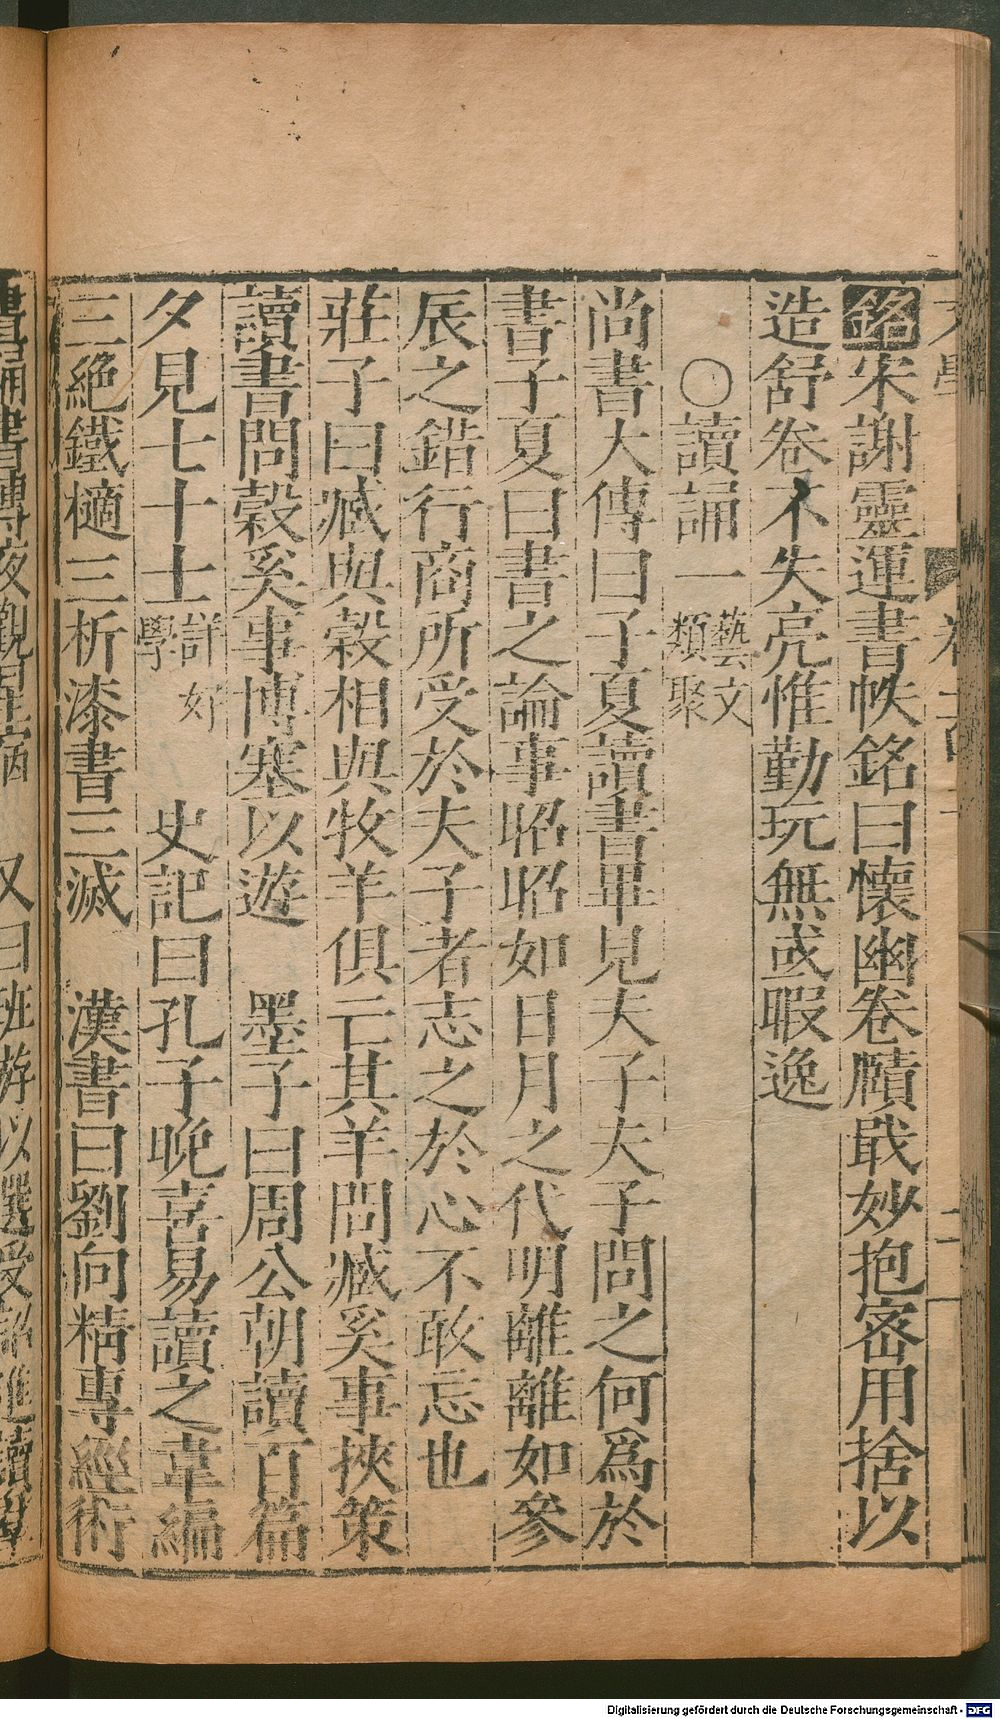 銘宋謝靈運書帙銘曰懷幽卷賾戢妙抱密用舍以
造舒卷不失亮惟勤玩無或暇逸
○讀誦一藝文類聚
尚書大傳曰子夏讀書畢見夫子夫子問之何爲於
書子夏曰書之論事昭昭如日月之代明離離如參
辰之錯行商所受於夫子者志之於心不敢忘也
莊子曰臧與穀相與牧羊俱亡其羊問臧奚事挾策
讀書問穀奚事博塞以遊　墨子曰周公朝讀百篇
夕見七十士詳好學　史記曰孔子晚喜易讀之韋編
三絶鐵擿三折漆書三滅　漢書曰劉向精專經術
又曰班斿以選受詔進讀羣
Digitalisierung gefördert durch die Deutsche Forschungsgemeinschaft - DFG